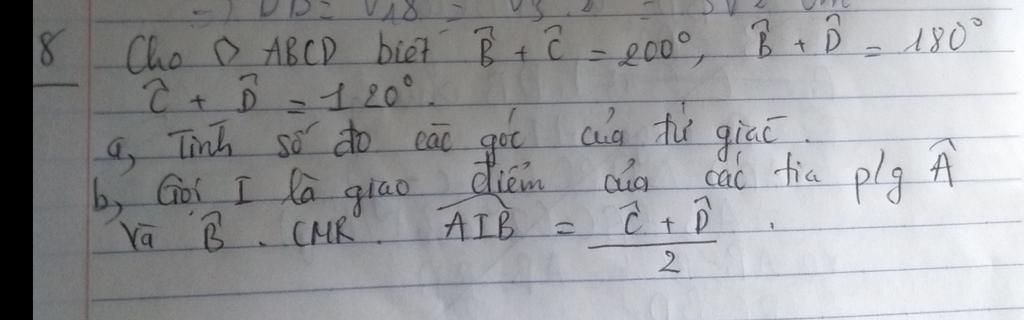 8 Cho ◊ ABCD biết B̂ + Ĉ = 200°, B̂ + D̂ = 180°
Ĉ + D̂ = 120°.
a, Tính số đo các góc của tứ giác.
b, Gọi I là giao điểm của các tia p/g Â
và B̂. CMR. AIB̂ = (Ĉ + D̂)/2.